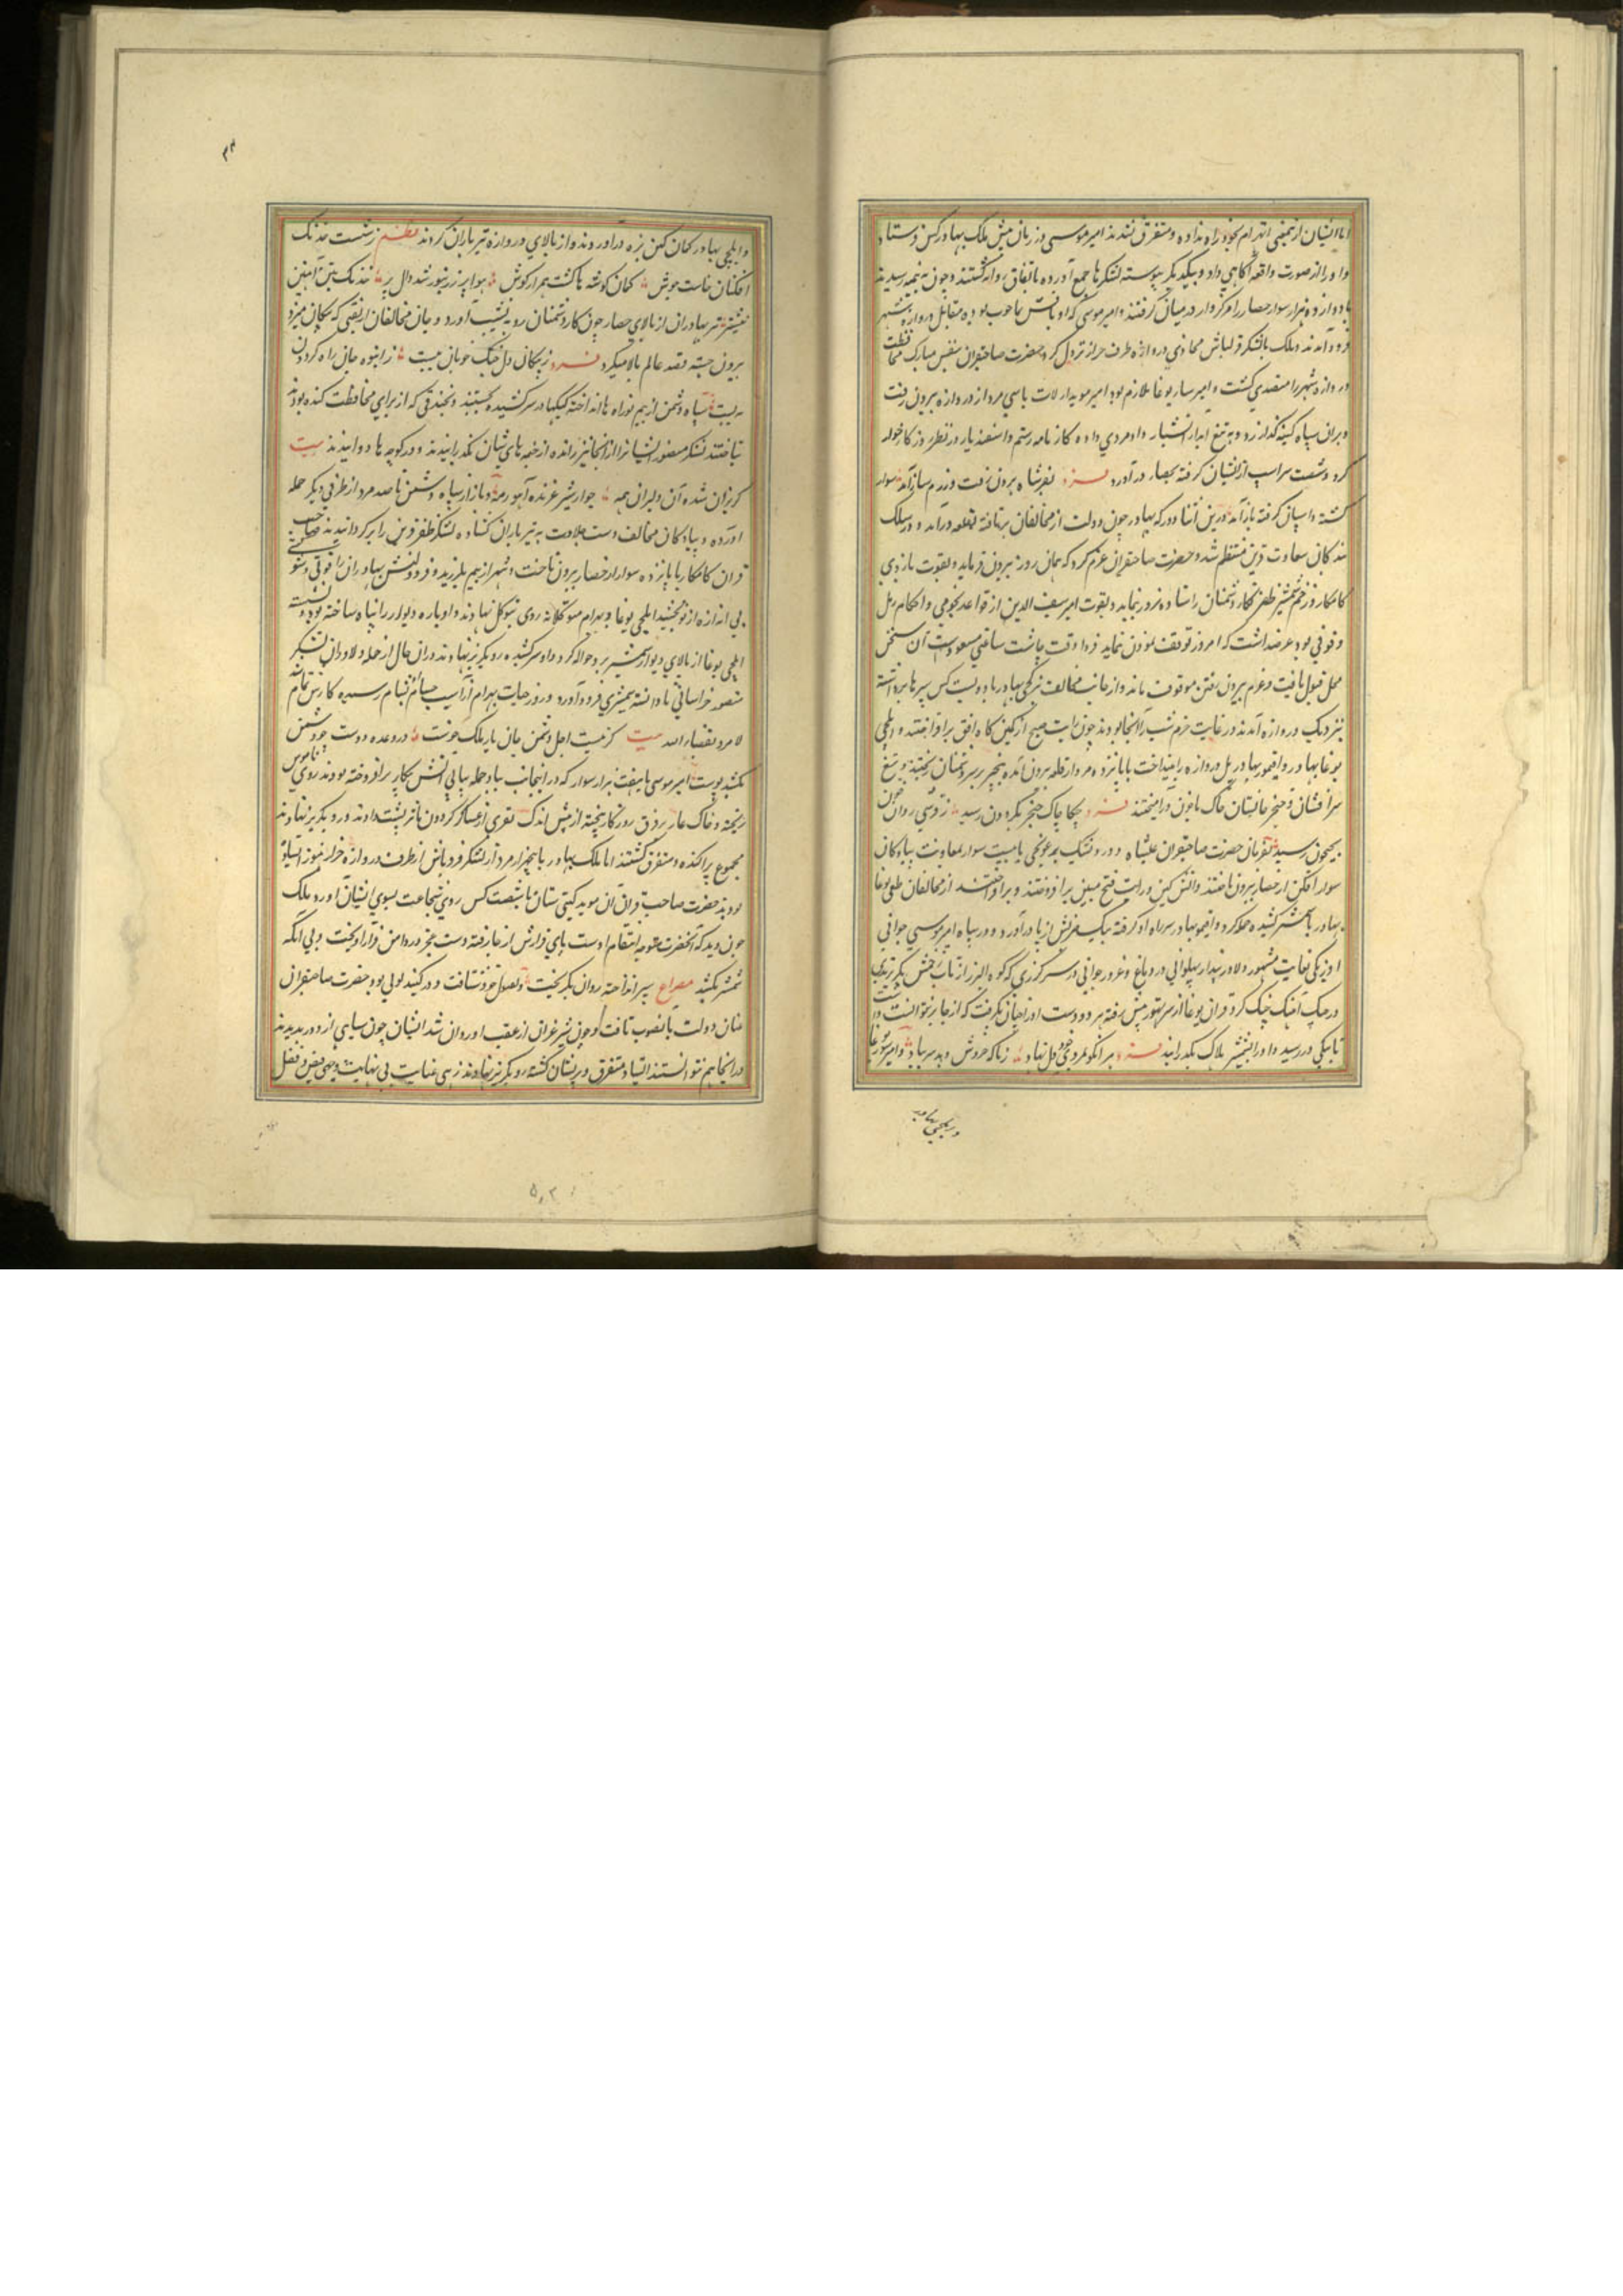 اما ایشان از تمیمی انهزام بخود راه نداده و متفرق نشدند امیر موسی در زمان پیش ملک بهادر کس فرستاد
و او را از صورت واقعه آگاهی داد و بیکدیگر پیوسته لشکرها جمع آورده باتفاق روانه گشتند و چون به نیمه رسیدند
با دوازده هزار سوار حصار را مرکزوار در میان گرفتند و امیر موسی که او باشش تا خوب بوده مقابل دروازه شهر
فرود آمدند و ملک با لشکر قرلباش محاذی دروازه طرف خزار نزول کرد حضرت صاحبقران بنفس مبارک محافظت
دروازه شهر را متصدی گشت و امیر ساربوغا ملازم بود امیر موید ارلات با سی مرد از دروازه بیرون رفت
و بران سپاه کینه گذار زد و به تیغ آبدار آتشبار داد مردی داده کارنامه رستم و اسفندیار در نظر روزگار خوار
کرد و شصت سر اسب از ایشان گرفته بحصار درآورد بفر شاه برون رفت و رزم ساز آمد سوار
کشته و اسپان گرفته باز آمد درین اثنا دور که بهادر چون دولت از مخالفان برتافته بقلعه درآمد و در سلک
بندگان سعادت قرین منتظم شد و حضرت صاحبقران عزم کرد که همان روز بیرون فرماید و بقوت بازوی
کامکار و زخم شمشیر ظفر نگار دشمنان را ستاده نرود نماید و بقوت امیر سیف الدین از قواعد نجومی و احکام رمل
وقوفی بود عرضه داشت که امروز توقف نمودن نماید فردا وقت چاشت ساعتی مسعودست آن سخن
محل قبول یافت و عزم بیرون رفتن موقوف ماند و از جانب مخالف نرکجی بهادر با دویست کس سپرها برداشته
بنزدیک دروازه آمدند و در غایت حزم شب را آنجا بودند چون رایت صبح از کمین گاه افق برافراختند و ایلچی
بوغا بهادر و اقتمور بهادر پل دروازه را بینداخت با پانزده مرد از قلعه برون آمده بیخبر بر سر دشمنان ریختند و بتیغ
سرافشان و خنجر جانستان خاک با خون درآمیختند چکاچاک خنجر بگردون رسید ز توسی روان خون
بجیحون رسید بفرمان حضرت صاحبقران علیشاه و دورونتک برغوجی با بیست سوار بمعاونت پیادگان
سوار افکن از حصار بیرون تاختند و آتش کین و رایت فتح مبین برافروختند و برافراختند از مخالفان طغی بوغا
بهادر با شمشیر کشیده حمله کرد و اقتمور بهادر سر راه او گرفته بیک ضربش از پا درآورد و در سپاه امیر موسی جوانی
اوزبکی بغایت مشهور و دلاور پندار پهلوانی در دماغ و غرور جوانی در سر گرزی که کوه البرز از تاب زخمش بگریزدی
در چنگ آهنگ جنگ کرد قران بوغا از سر تهور پیش رفته هر دو دست او را چنانی بگرفت که از جا بر نتوانست داشت
تا یکی در رسید و او را بشمشیر هلاک بگذرانید هر انکو بمردی خود دل نهاد زمانه خروش دهد سر بباد و امیر ساربوغا
و ایلچی بهادر
و ایلچی بهادر کمان کین بزه درآوردند و از بالای دروازه تیرباران کردند نظم ز شست خدنگ
افکنان خاست جوش کمان گوشه ها گشت همراز گوش هوا پر ز زنبور شد دال پر خدنگ تن آهنین
نیشتر تیر بهادران از بالای حصار چون کار دشمنان رو به نشیب آورد و جان مخالفان از تفی که پیکان میزد
برون جسته قصد عالم بالا میکرد فرد ز پیکان دل جنگ جویان بیست ز انبوه جان راه گردون
ببست سپاه دشمن از بیم توراه ها انداخته کپکها در سر کشیده بجستند و بخندقی که از برای محافظت کنده بودند
بتاختند لشکر منصور ایشانرا از آنجا نیز رانده از خیمه های شان بگذرانیدند و در کوچه ها دوانیدند بیت
گریزان شده آن دلیران همه چو از شیر غرنده آهو رمه و باز از سپاه دشمن تا صد مرد از طرفی دیگر حمله
آورده و پیادگان مخالف دست جلادت به تیرباران گشاده لشکر ظفر قرین را برگردانیدند صاحب
قران کامکار با پانزده سوار از حصار بیرون تاخت و شهر از بیم بلرزید و فرو دولتش بهادران را قوتی و شوکتی
بی اندازه از نو بخشید ایلچی بوغا و بهرام متوکلانه روی بتوکل نهادند و او باره دیوار را پناه ساخته بود و نشسته
ایلچی بوغا از بالای دیوار شمشیر برو حواله کرد و او سر کشیده رو بگریز نهاد و در ان حال از حمله دلاوران لشکر
منصور خراسانی نادانسته شمشیری فرود آورد و روز حیات بهرام از آسیب حسام بشام رسیده کارش تمام شد
لا مرد لقضاء الله بیت گر غیبت اجل دشمن جان یار ملک خوست در وعده دوست چو دشمن
بکشد پوست امیر موسی با هفت هزار سوار که در آنجانب بباد حمله پیاپی آتش پیکار برافروخته بودند روی ناموس
ریخته و خاک عار بر فرق روزگار بیخته از پیش اندک نفری از عساکر گردون تاثر پشت دادند و رو بگریز نهادند
مجموع پراکنده و متفرق گشتند اما ملک بهادر با پنجهزار مرد از لشکر قرویاش از طرف دروازه خزار هنوز ایستاده
بودند حضرت صاحب قران آن موید گیتی ستان با شصت کس روی شجاعت بسوی ایشان آورد و ملک
چون دید که آنحضرت متوجه انتقام اوست پای قرارش از جا رفته دست عجز در دامن فرار آویخت و بی آنکه
شمشیر بکشد مصراع سپر انداخته روان بگریخت و بفضول خود شتافت و در کنبد لولی بود حضرت صاحبقران
عنان دولت بانصوب تافت و چون شیر غران از عقب او روان شد ایشان چون سیاهی از دور بدیدند
در آنجا هم نتوانستند ایستاد متفرق و پریشان گشته رو بگریز نهادند زهی عنایت بی نهایت و زهی فیض و فضل